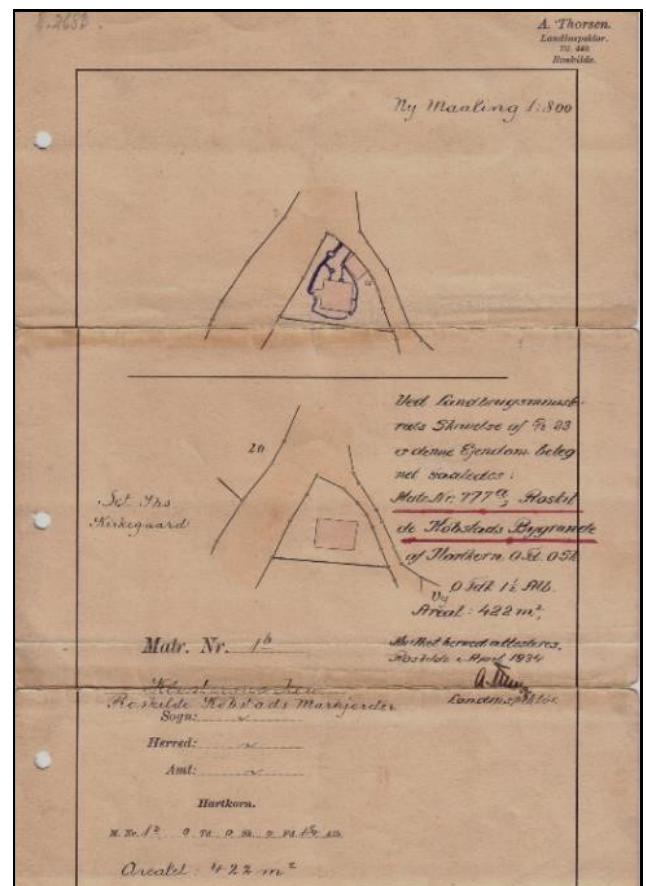 A. Thorsen.
Landinspektør.
Tlf. 440.
Roskilde.
Ny Maaling 1:800
Ved Landbrugsminist-
riets Skrivelse af
er denne Ejendom beteg
net saaledes:
Matr. Nr. 777ª, Roskil
de Købstads Bygrunde
af Hartkorn 0 Td. 0 Sk.
0 Fdk. 1½ Alb.
Areal: 422 m²,
hvilket herved attesteres.
Roskilde i April 1934
Landinspektør
Sct. Ibs
Kirkegaard
Matr. Nr. 1ᵇ
Roskilde Købstads Markjorder
Sogn:
Herred:
Amt:
Hartkorn.
Arealet: 422 m²